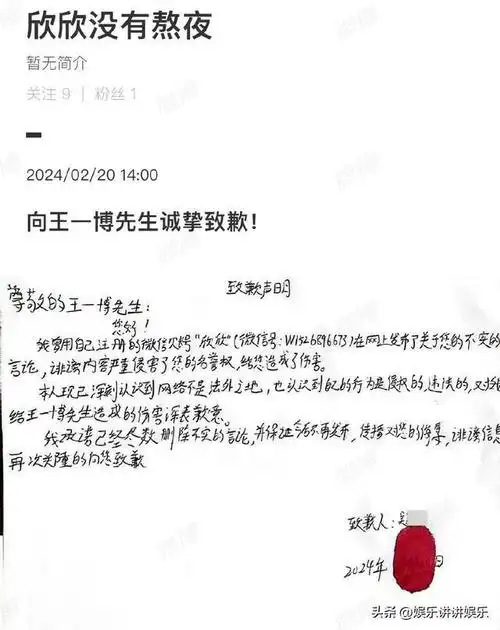 欣欣没有熬夜
暂无简介
关注 9 | 粉丝 1
2024/02/20 14:00
向王一博先生诚挚致歉！
致歉声明
尊敬的王一博先生：
您好！
我曾用自己注册的微信账号"欣欣"(微信号：W1526896673)在网上发布了关于您的不实的
言论，诽谤内容严重侵害了您的名誉权，给您造成了伤害。
本人现已深刻认识到网络不是法外之地，也认识到自己的行为是侵权的、违法的，对
给王一博先生造成的伤害深表歉意。
我承诺已经尽数删除不实的言论，并保证今后不再发布，传播对您的侮辱，诽谤信息
再次郑重的向您致歉
致歉人：
2024年 日
头条 @娱乐讲讲娱乐